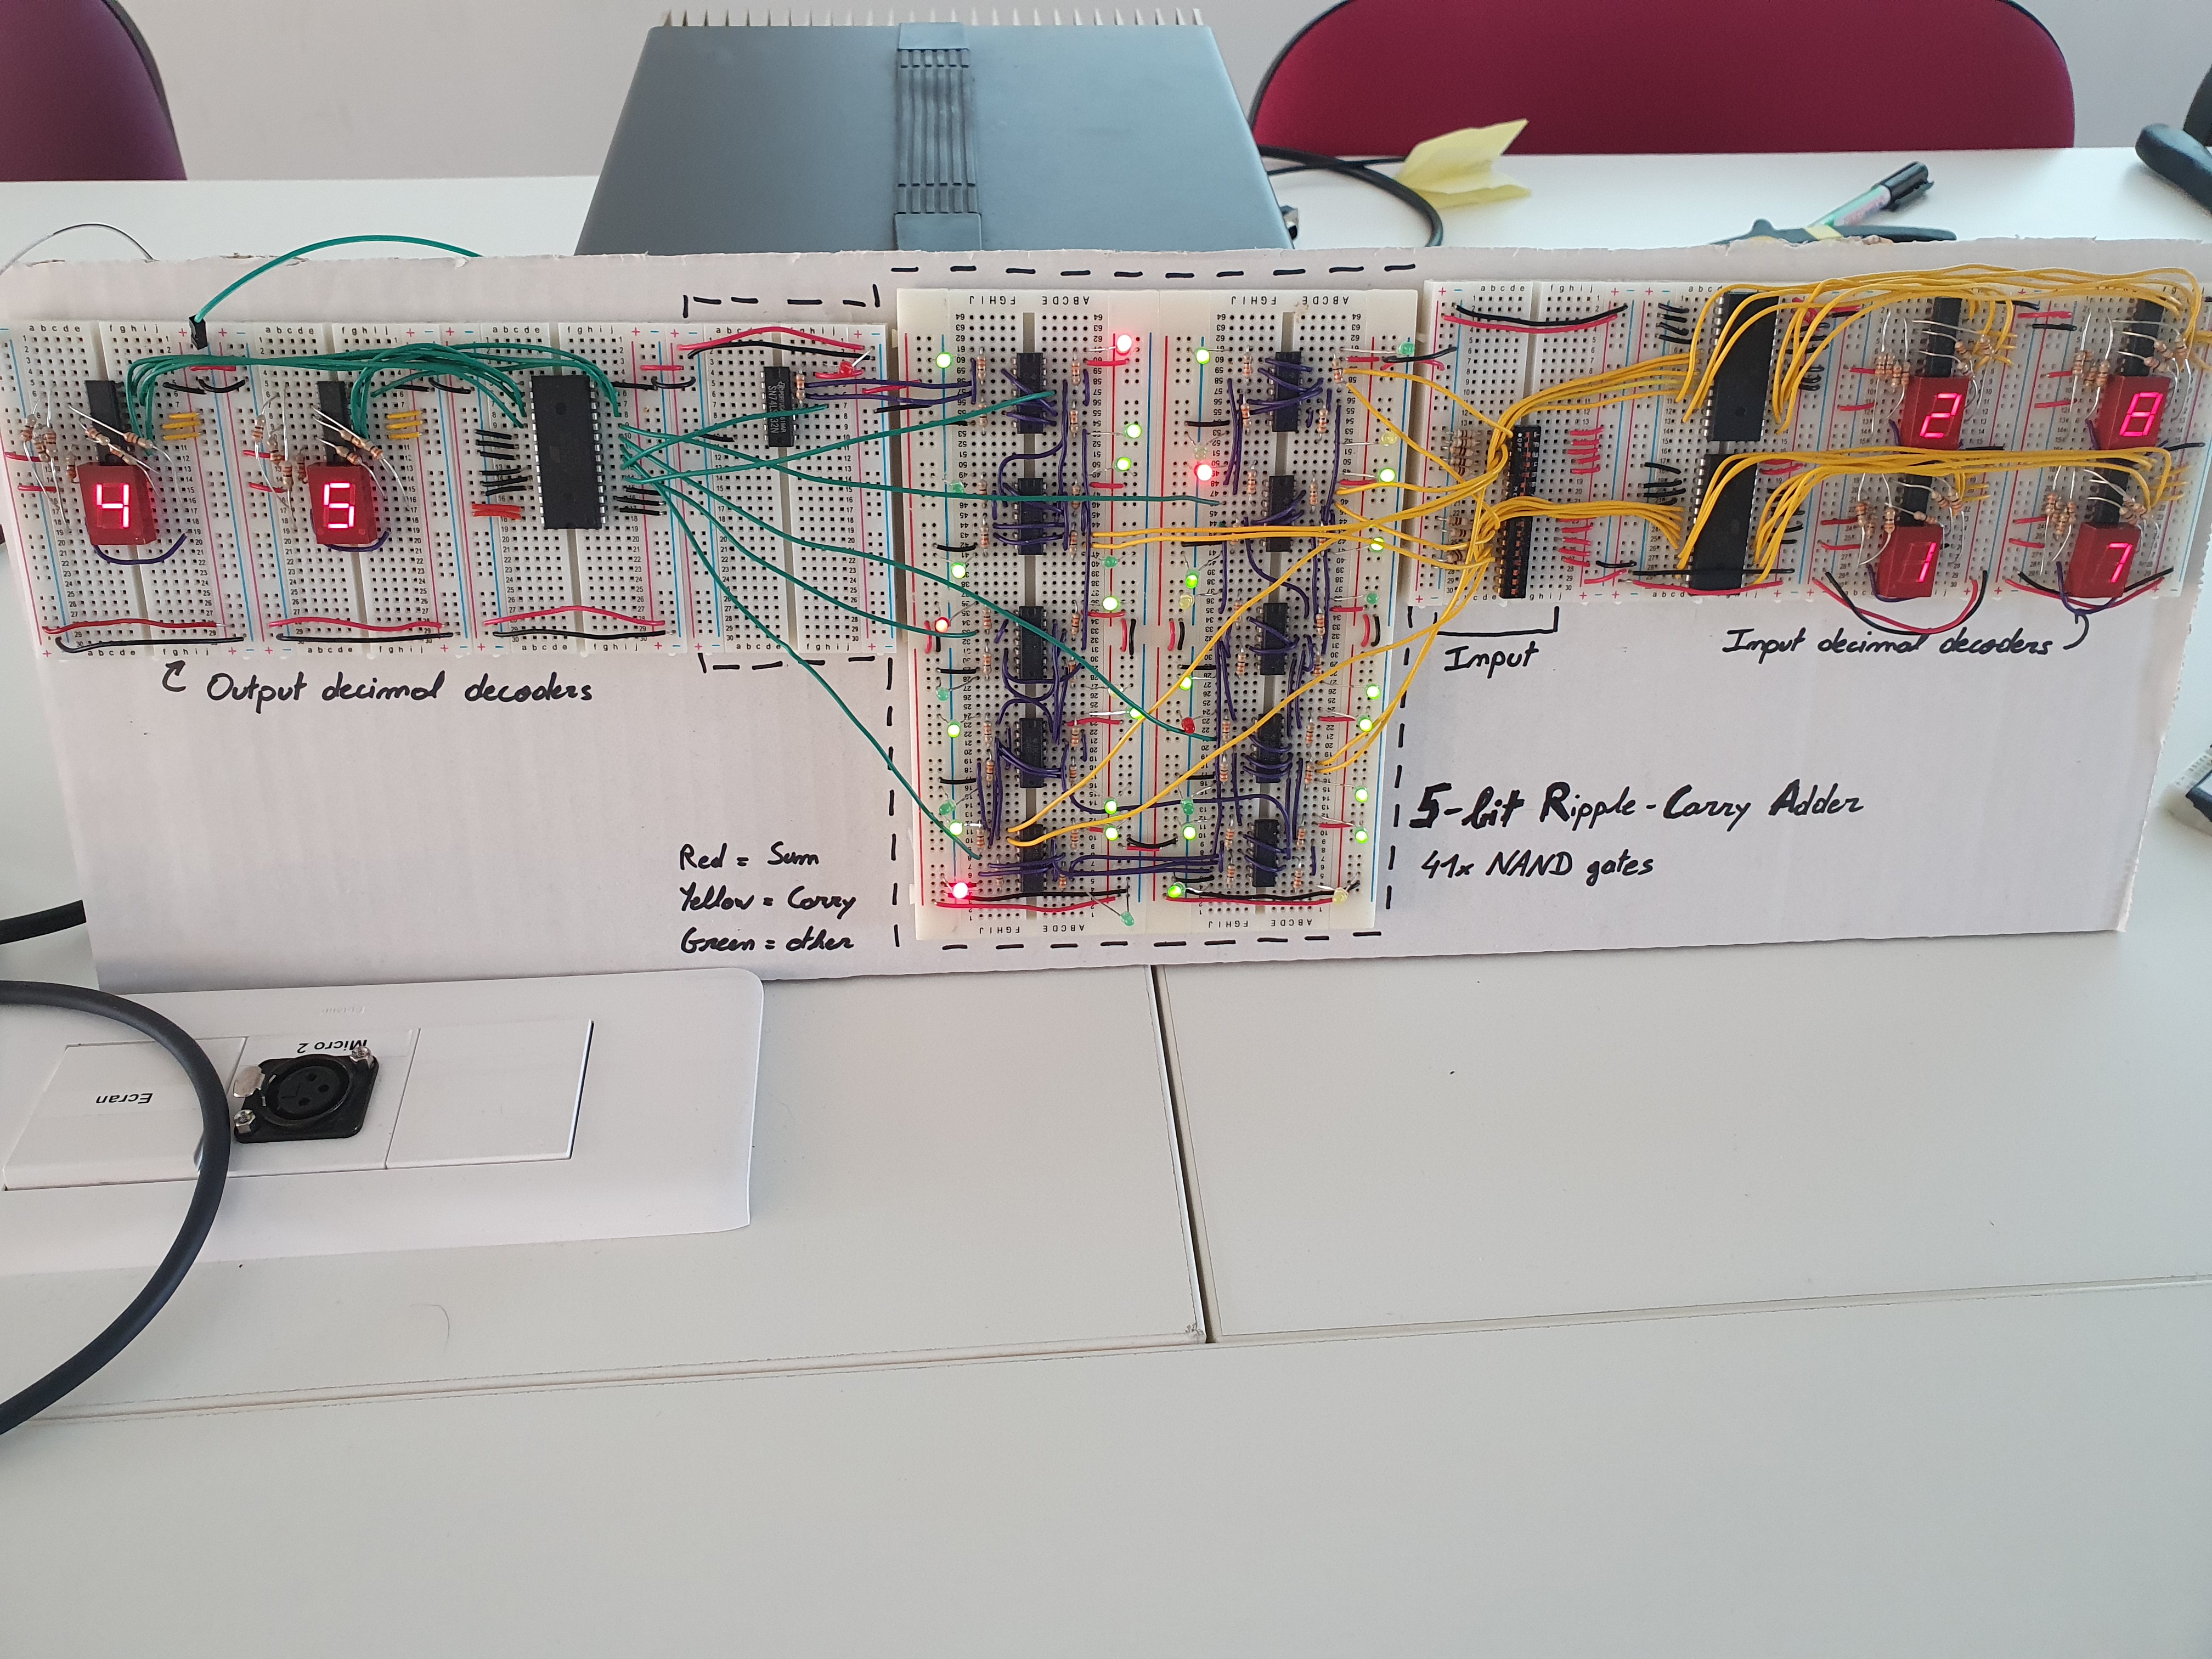 4 5
2 8
1 7
Output decimal decoders
Input
Input decimal decoders
5-bit Ripple-Carry Adder
41x NAND gates
Red = Sum
Yellow = Carry
Green = other
Micro 2
Ecran